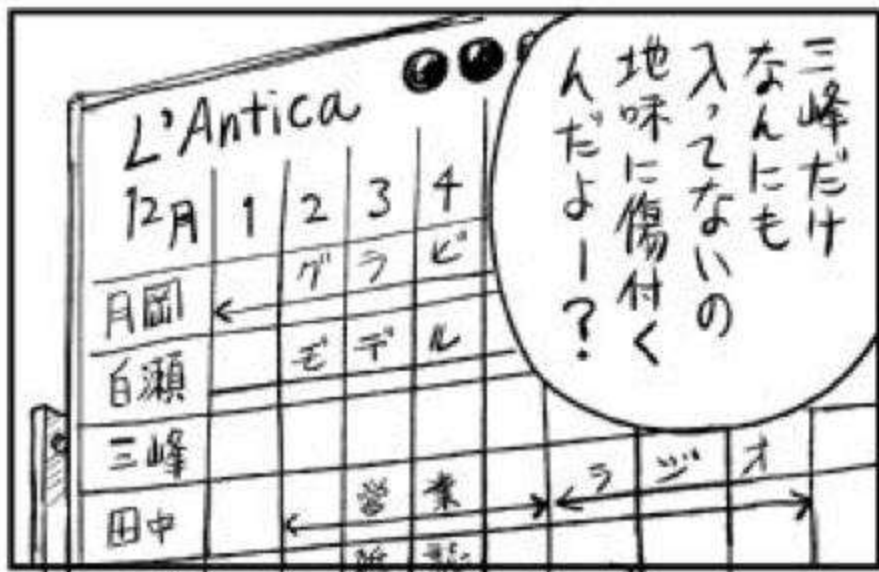 三峰だけ
なんにも
入ってないの
地味に傷付く
んだよー？
L'Antica
12月 1 2 3 4
月岡 グラビ
白瀬 モデル
三峰
田中 営業 ラジオ